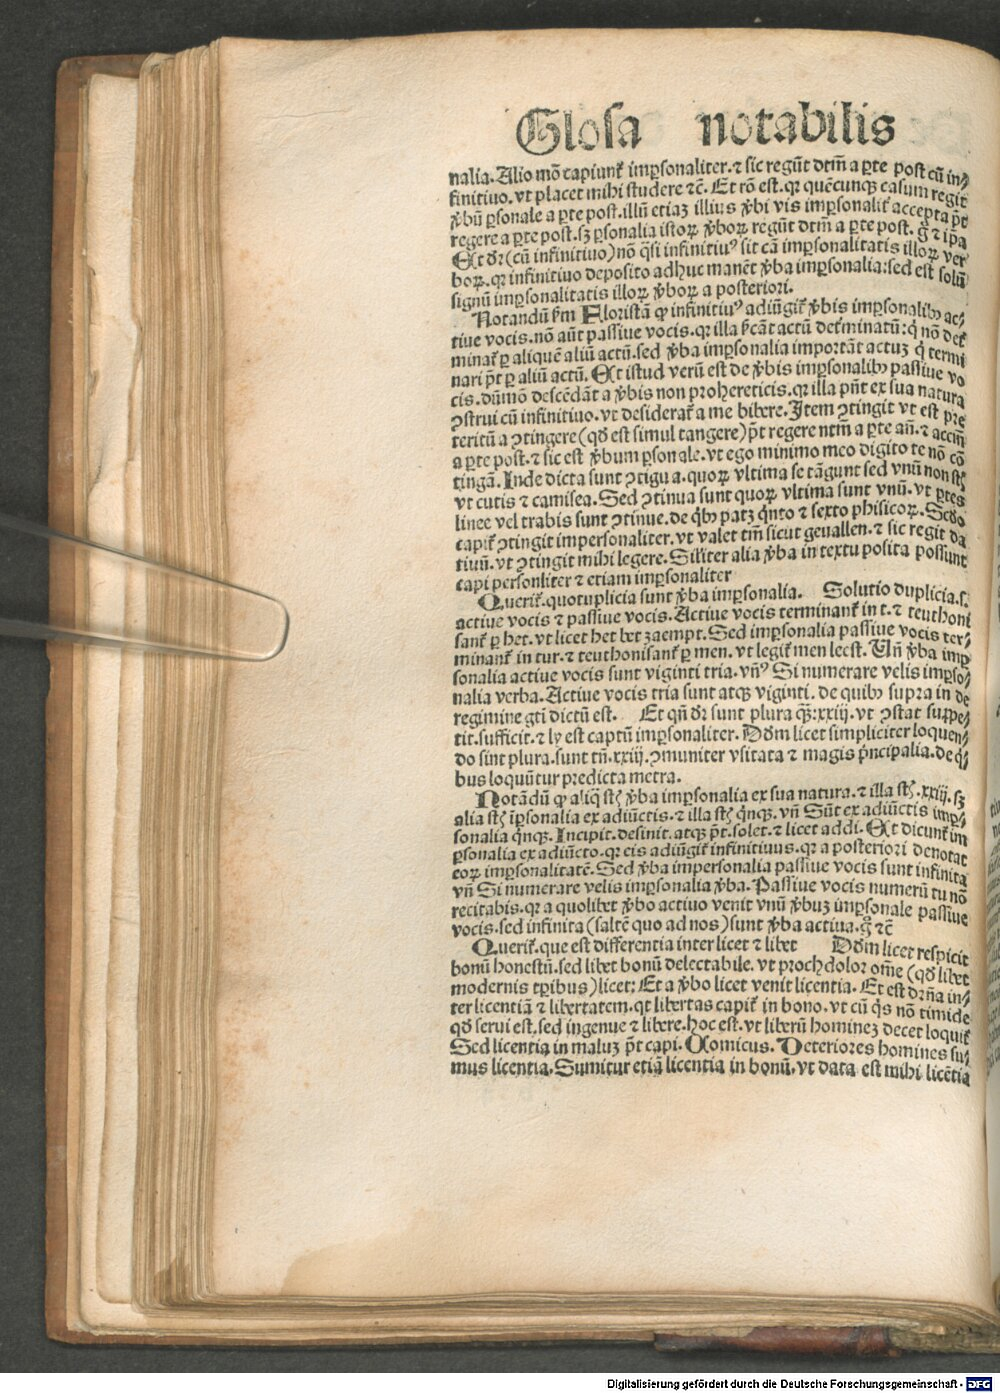 Glosa notabilis
nalia. Alio mõ capiunt̃ imꝑsonaliter. ⁊ sic regũt dtm̃ a ꝑte post cũ in⸗
finitiuo. vt placet mihi studere ⁊c̃. Et rõ est. qꝛ quẽcunqꝫ casum regit
ꝟbũ ꝑsonale a ꝑte post. illũ etiaꝫ illius ꝟbi vis imꝑsonalit̃ accepta p̃t
regere a ꝑte post. sꝫ ꝑsonalia istoꝝ ꝟboꝝ regũt dtm̃ a ꝑte post. g̊ ⁊ ip̃a
Et dr̃ (cũ infinitiuo) nõ q̃si infinitiuꝰ sit cã imꝑsonalitatis illoꝝ ver
boꝝ. qꝛ infinitiuo deposito adhuc manẽt ꝟba imꝑsonalia: sed est solũ
signũ imꝑsonalitatis illoꝝ ꝟboꝝ a posteriori.
Notandũ ẜm Floristã ꝙ infinitiuꝰ adiũgit̃ ꝟbis imꝑsonalibꝫ ac⸗
tiue vocis. nõ aũt passiue vocis. qꝛ illa ẜcãt actũ det̃minatũ: q̇ nõ det̃
minat̃ ꝑ aliquẽ aliũ actũ. sed ꝟba imꝑsonalia importãt actuꝫ q̇ termi
nari p̃t ꝑ aliũ actũ. Et istud verũ est de ꝟbis imꝑsonalibꝫ passiue vo
cis. dũmõ descẽdãt a ꝟbis non prohereticis. qꝛ illa pñt ex sua natura
ꝯstrui cũ infinitiuo. vt desiderat̃ a me bibere. Item ꝯtingit vt est pre
teritũ a ꝯtingere (qḋ est simul tangere) p̃t regere ntm̃ a ꝑte añ. ⁊ accm̃
a ꝑte post. ⁊ sic est ꝟbum ꝑsonale. vt ego minimo meo digito te nõ cõ
tingã. Inde dicta sunt ꝯtigua. quoꝝ vltima se tãgunt sed vnũ non st̃
vt cutis ⁊ camisea. Sed ꝯtinua sunt quoꝝ vltima sunt vnũ. vt ꝑtes
linee vel trabis sunt ꝯtinue. de q̇bꝫ patꝫ q̇nto ⁊ sexto phisicoꝝ. Scḋo
capit̃ ꝯtingit impersonaliter. vt valet tm̃ sicut geuallen. ⁊ sic regit da
tiuũ. vt ꝯtingit mihi legere. Silˀiter alia ꝟba in textu posita possunt
capi personliter ⁊ etiam imꝑsonaliter
Querit̃. quotuplicia sunt ꝟba imꝑsonalia. Solutio duplicia. s.
actiue vocis ⁊ passiue vocis. Actiue vocis terminant̃ in t. ⁊ teuthoni
sant̃ ꝑ het. vt licet het bet zaempt. Sed imꝑsonalia passiue vocis ter⸗
minant̃ in tur. ⁊ teuthonisant̃ ꝑ men. vt legit̃ men leest. Uñ ꝟba imꝑ
sonalia actiue vocis sunt viginti tria. vñꝰ Si numerare velis imꝑso⸗
nalia verba. Actiue vocis tria sunt atqꝫ viginti. de quibꝫ supra in de
regimine gti dictũ est. Et qñ dr̃ sunt plura qꝫ: xxiij. vt ꝯstat suppe⸗
tit. sufficit. ⁊ ly est captũ imꝑsonaliter. Dḋm licet simpliciter loquen⸗
do sint plura. sunt tñ. xxiij. ꝯmuniter vsitata ⁊ magis p̃ncipalia. de q̇⸗
bus loquũtur predicta metra.
Notãdũ ꝙ aliq̃ st̃ ꝟba imꝑsonalia ex sua natura. ⁊ illa st̃. xxiij. sꝫ
alia st̃ ĩꝑsonalia ex adiũctis. ⁊ illa st̃ q̇nqꝫ. vñ Sũt ex adiũctis imꝑ⸗
sonalia q̇nqꝫ. Incipit. desinit. atqꝫ p̃t. solet. ⁊ licet addi. Et dicunt̃ im
ꝑsonalia ex adiũcto. qꝛ eis adiũgit̃ infinitiuus. qꝛ a posteriori denotat
eoꝝ imꝑsonalitatẽ. Sed ꝟba impersonalia passiue vocis sunt infinita
vñ Si numerare velis imꝑsonalia ꝟba. Passiue vocis numerũ tu nõ
recitabis. qꝛ a quolibet ꝟbo actiuo venit vnũ ꝟbuꝫ imꝑsonale passiue
vocis. sed infinita (saltẽ quo ad nos) sunt ꝟba actiua. g̊ ⁊c̃
Querit̃. que est differentia inter licet ⁊ libet Dḋm licet respicit
bonũ honestũ. sed libet bonũ delectabile. vt prochdolor oм̃e (qḋ libet
modernis tꝑibus) licet: Et a ꝟbo licet venit licentia. Et est dr̃ña in⸗
ter licentiã ⁊ libertatem. qꝛ libertas capit̃ in bono. vt cũ q̇s nõ timide
qḋ serui est. sed ingenue ⁊ libere. hoc est. vt liberũ homineꝫ decet loquit̃
Sed licentia in maluꝫ p̃t capi. Comicus. Deteriores homines su⸗
mus licentia. Sumitur etiã licentia in bonũ. vt data est mihi licẽtia
Digitalisierung gefördert durch die Deutsche Forschungsgemeinschaft - DFG